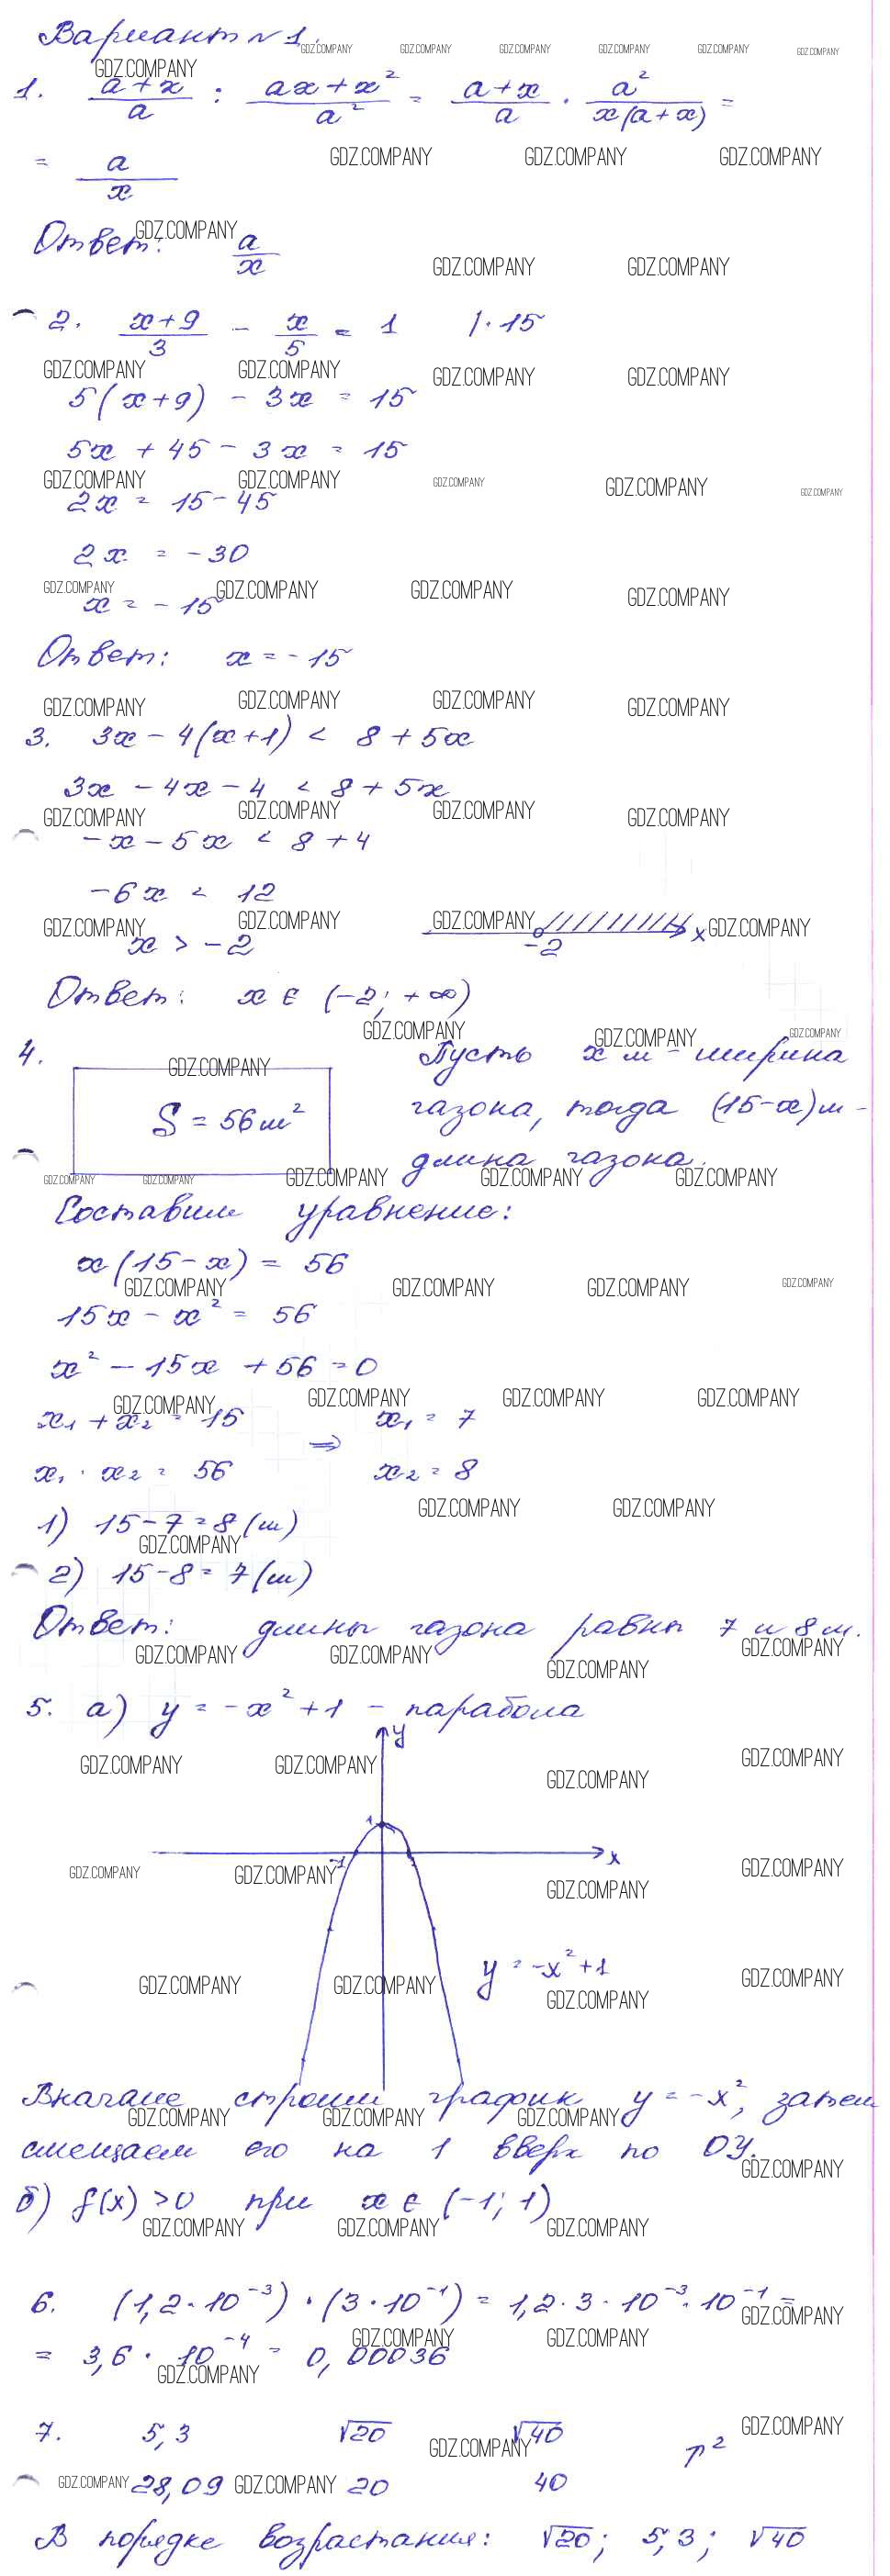 Вариант №1.
1. (a+x)/a : (ax+x²)/a² = (a+x)/a · a²/(x(a+x)) =
= a/x
Ответ: a/x
2. (x+9)/3 - x/5 = 1 |·15
5(x+9) - 3x = 15
5x + 45 - 3x = 15
2x = 15-45
2x = -30
x = -15
Ответ: x = -15
3. 3x - 4(x+1) < 8 + 5x
3x - 4x - 4 < 8 + 5x
-x - 5x < 8 + 4
-6x < 12
x > -2
-2 x
Ответ: x ∈ (-2; +∞)
4. Пусть x м - ширина
S = 56 м² газона, тогда (15-x) м -
длина газона.
Составим уравнение:
x(15-x) = 56
15x - x² = 56
x² - 15x + 56 = 0
x₁ + x₂ = 15 ⇒ x₁ = 7
x₁ · x₂ = 56 x₂ = 8
1) 15-7=8 (м)
2) 15-8=7 (м)
Ответ: длины газона равны 7 и 8 м.
5. а) y = -x² + 1 - парабола
y
1
-1 x
y = -x² + 1
Вначале строим график y = -x², затем
смещаем его на 1 вверх по ОУ.
б) f(x) > 0 при x ∈ (-1; 1)
6. (1,2·10⁻³)·(3·10⁻¹) = 1,2·3·10⁻³·10⁻¹ =
= 3,6·10⁻⁴ = 0,00036
7. 5,3 √20 √40 ↑²
28,09 20 40
В порядке возрастания: √20; 5,3; √40
GDZ.COMPANY